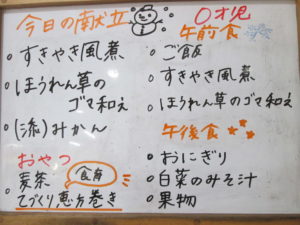 今日の献立
○すきやき風煮
○ほうれん草の
ゴマ和え
○(添)みかん
おやつ
麦茶
食育
てづくり恵方巻き
0才児
午前食
○ご飯
○すきやき風煮
○ほうれん草のゴマ和え
午後食
○おにぎり
○白菜のみそ汁
○果物